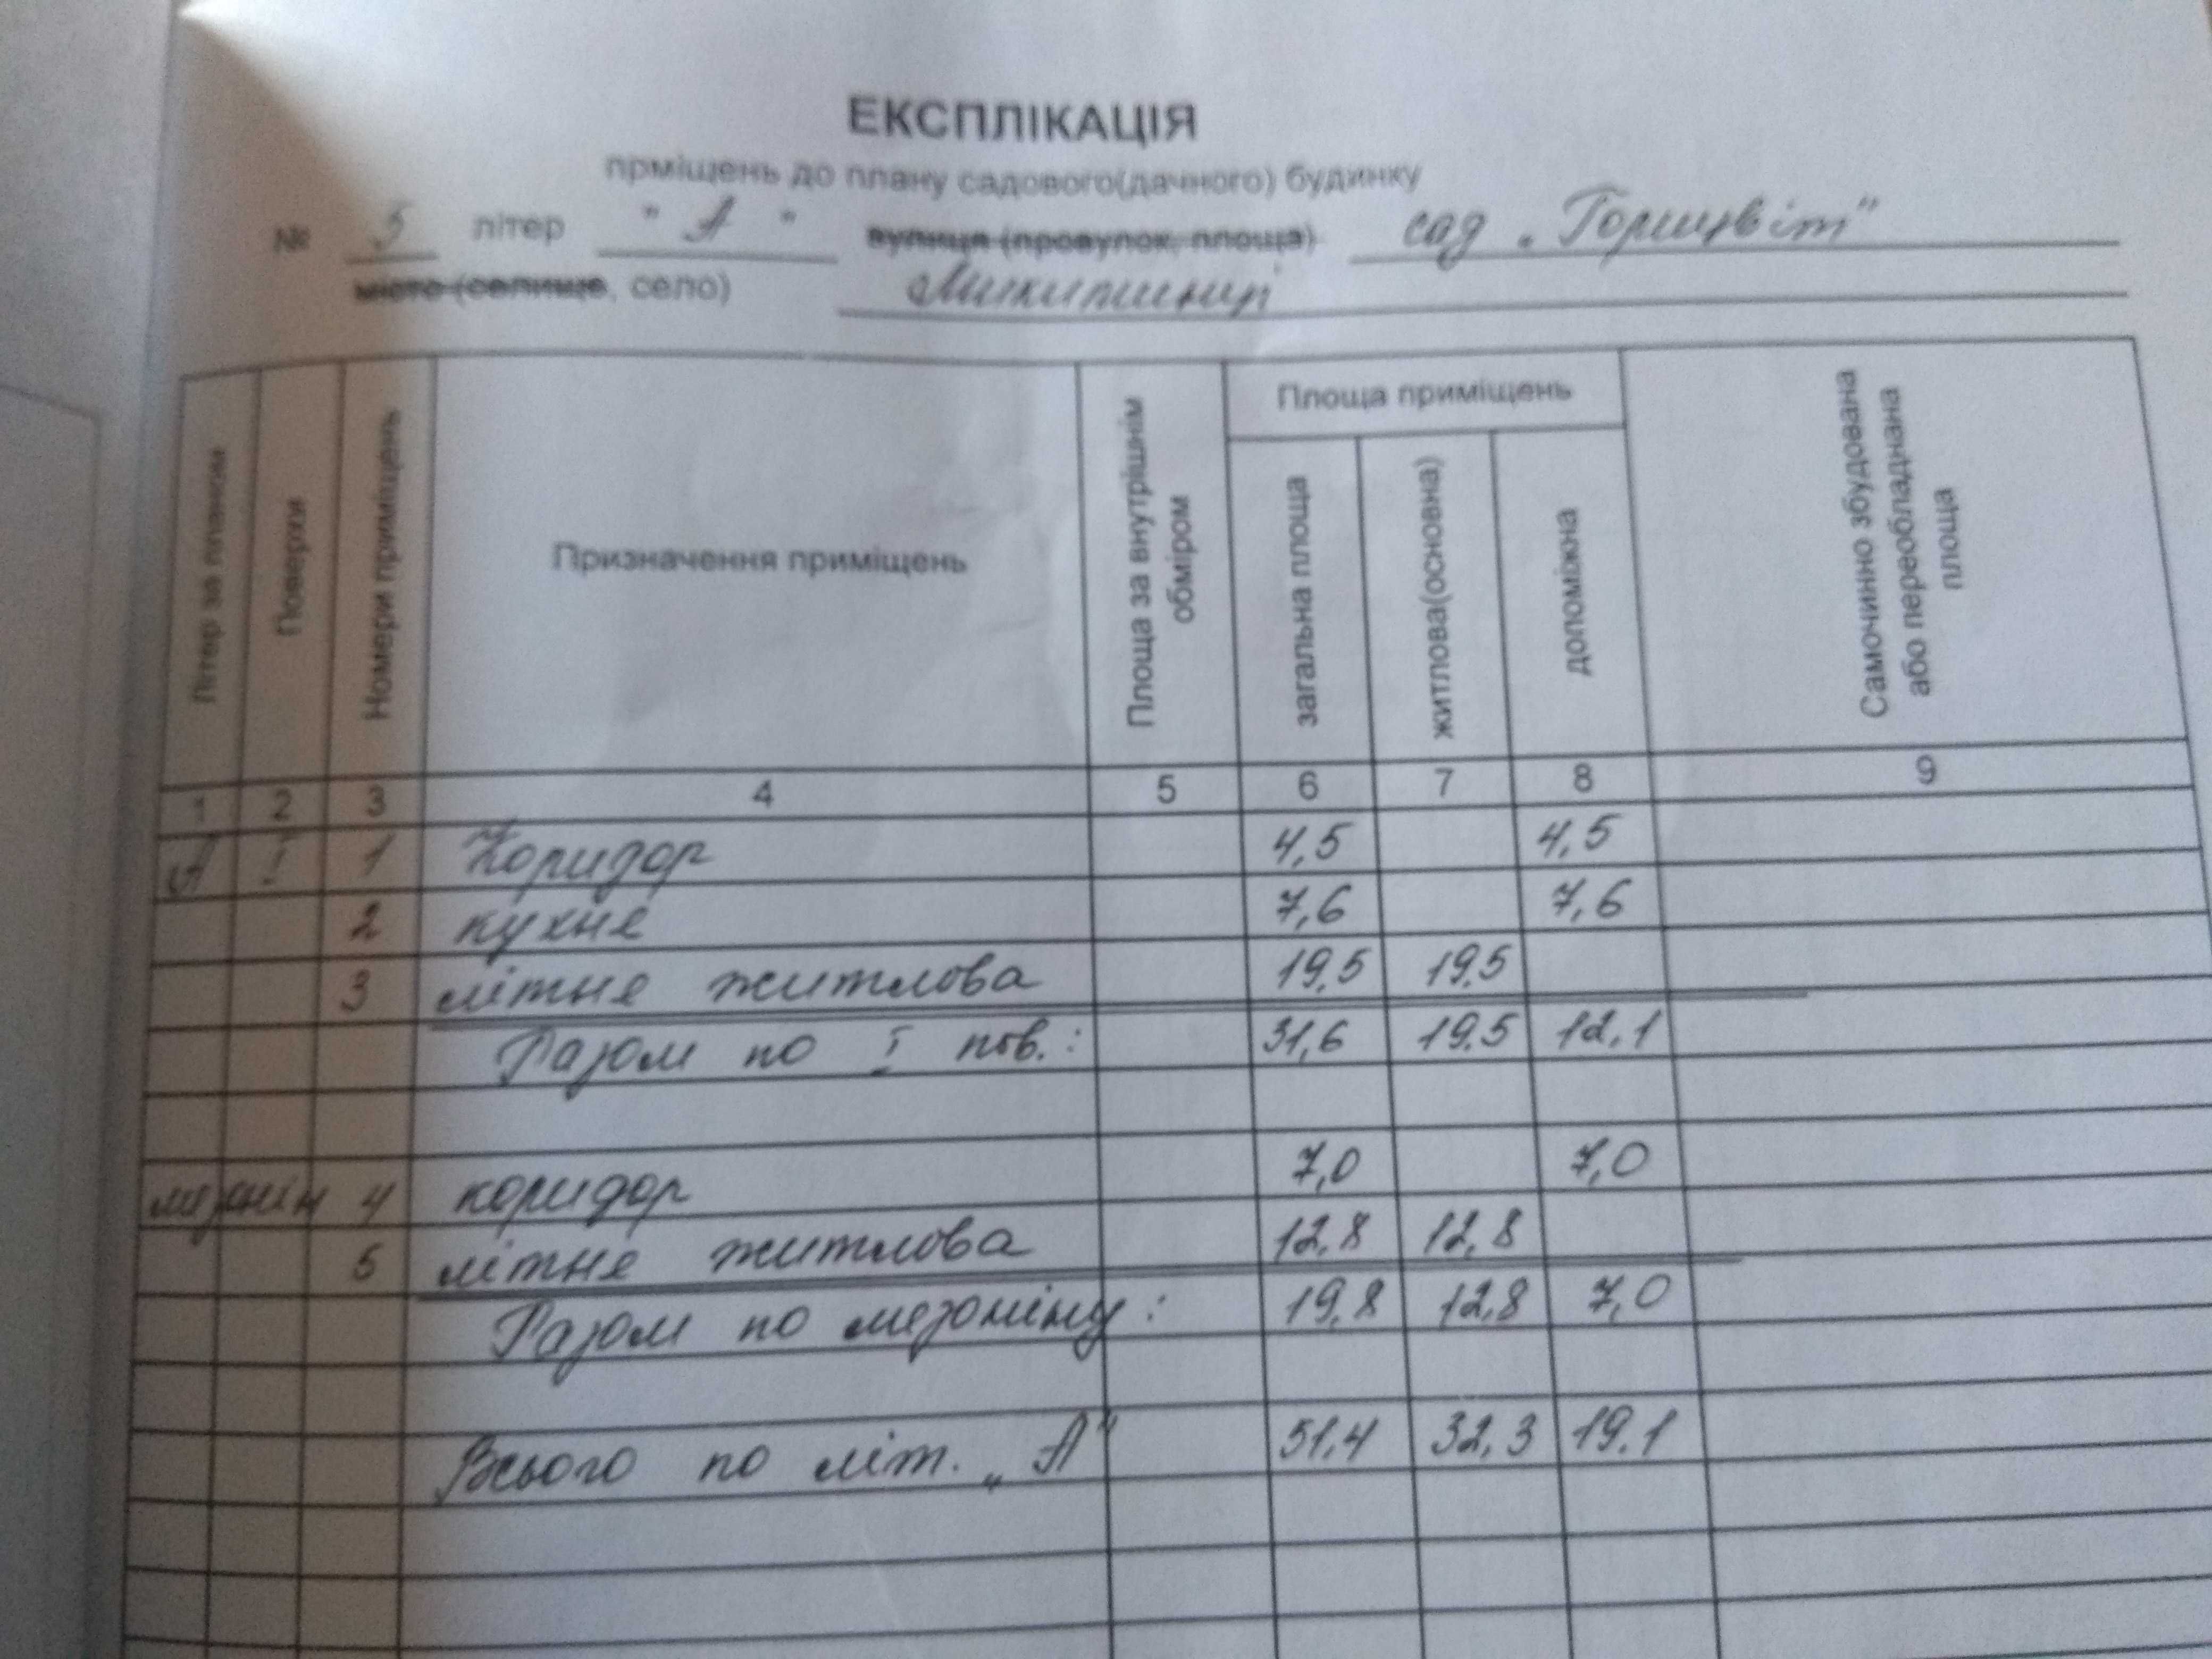 ЕКСПЛІКАЦІЯ
прміщень до плану садового(дачного) будинку
№ 5 літер "А" вулиця (провулок, площа) сад „Горицвіт"
місто (селище, село)
Літер за планом
Поверхи
Номери приміщень
Призначення приміщень
Площа за внутрішнім обміром
Площа приміщень
загальна площа
житлова(основна)
допоміжна
Самочинно збудована
або переобладнана
площа
1 2 3 4 5 6 7 8 9
А І 1 Коридор 4,5 4,5
2 кухне 7,6 7,6
3 літне житлова 19,5 19,5
Разом по І пов.: 31,6 19,5 12,1
мезонін 4 коридор 7,0 7,0
5 літне житлова 12,8 12,8
Разом по мезоніну: 19,8 12,8 7,0
Всього по літ. „А" 51,4 32,3 19,1